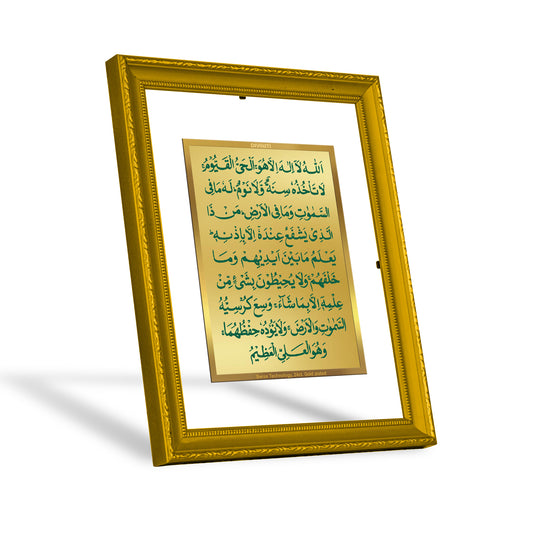 DIVINITI
اَللّٰهُ لَاۤ اِلٰهَ اِلَّا هُوَ ۚ اَلْحَیُّ الْقَیُّوْمُ ۚ
لَا تَاْخُذُهٗ سِنَةٌ وَّلَا نَوْمٌ ؕ لَهٗ مَا فِی
السَّمٰوٰتِ وَمَا فِی الْاَرْضِ ؕ مَنْ ذَا
الَّذِیْ یَشْفَعُ عِنْدَهٗۤ اِلَّا بِاِذْنِهٖ ؕ
یَعْلَمُ مَا بَیْنَ اَیْدِیْهِمْ وَمَا
خَلْفَهُمْ ۚ وَلَا یُحِیْطُوْنَ بِشَیْءٍ مِّنْ
عِلْمِهٖۤ اِلَّا بِمَا شَآءَ ۚ وَسِعَ كُرْسِیُّهُ
السَّمٰوٰتِ وَالْاَرْضَ ۚ وَلَا یَـُٔوْدُهٗ حِفْظُهُمَا ۚ
وَهُوَ الْعَلِیُّ الْعَظِیْمُ
Swiss Technology, 24ct. Gold plated